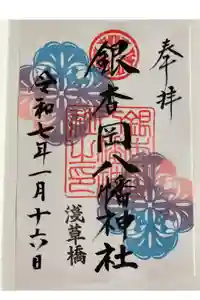 奉拝
銀杏岡八幡神社
浅草橋
令和七年一月十六日